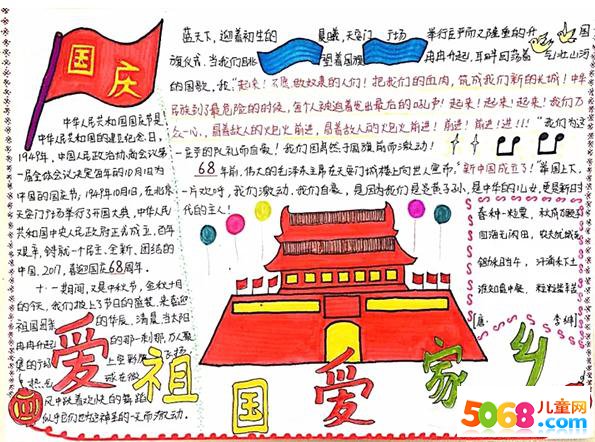 国庆
中华人民共和国国庆节是
中华人民共和国的建立纪念日，
1949年，中国人民政治协商会议第
一届全体会议决定每年的10月1日为
中国的国庆节；1949年10月1日，在北京
天安门广场举行了开国大典，中华人民
共和国中央人民政府正式成立，百年
艰辛，铸就一个民主、全新、团结的
中国，2017，喜迎国庆68周年。
十一期间，又是中秋节，金秋十月
的今天，我们披上了节日的盛装，来喜迎
祖国母亲的华辰，清晨，当太阳
冉冉升起的那一刹那，万人聚
集的广场上空彩
蓝天下，迎着初生的晨曦，天安门广场举行庄严而又隆重的升国
旗仪式，当我们目睹着国旗冉冉升起，耳畔回荡着气壮山河
的国歌，我“起来！不愿做奴隶的人们！把我们的血肉，筑成我们新的长城！中华
民族到了最危险的时候，每个人被迫着发出最后的吼声！起来！起来！起来！我们万
众一心，冒着敌人的炮火前进，冒着敌人的炮火前进！前进！前进！进！！”我们为这
一庄严的队礼而自豪！我们因勇然于国旗前而激动！
68年前，伟大的毛泽东主席在天安门城楼上向世人宣布，“新中国成立了！”举国上下，
一片欢呼，我们激动，我们自豪，是因为我们是炎黄子孙，是中华的儿女，是新时
代的主人！
春种一粒粟，秋成万颗子
四海无闲田，农夫犹饿死
锄禾日当午，汗滴禾下土
谁知盘中餐，粒粒皆辛苦
［唐］李绅
爱祖国爱家乡
5068儿童网